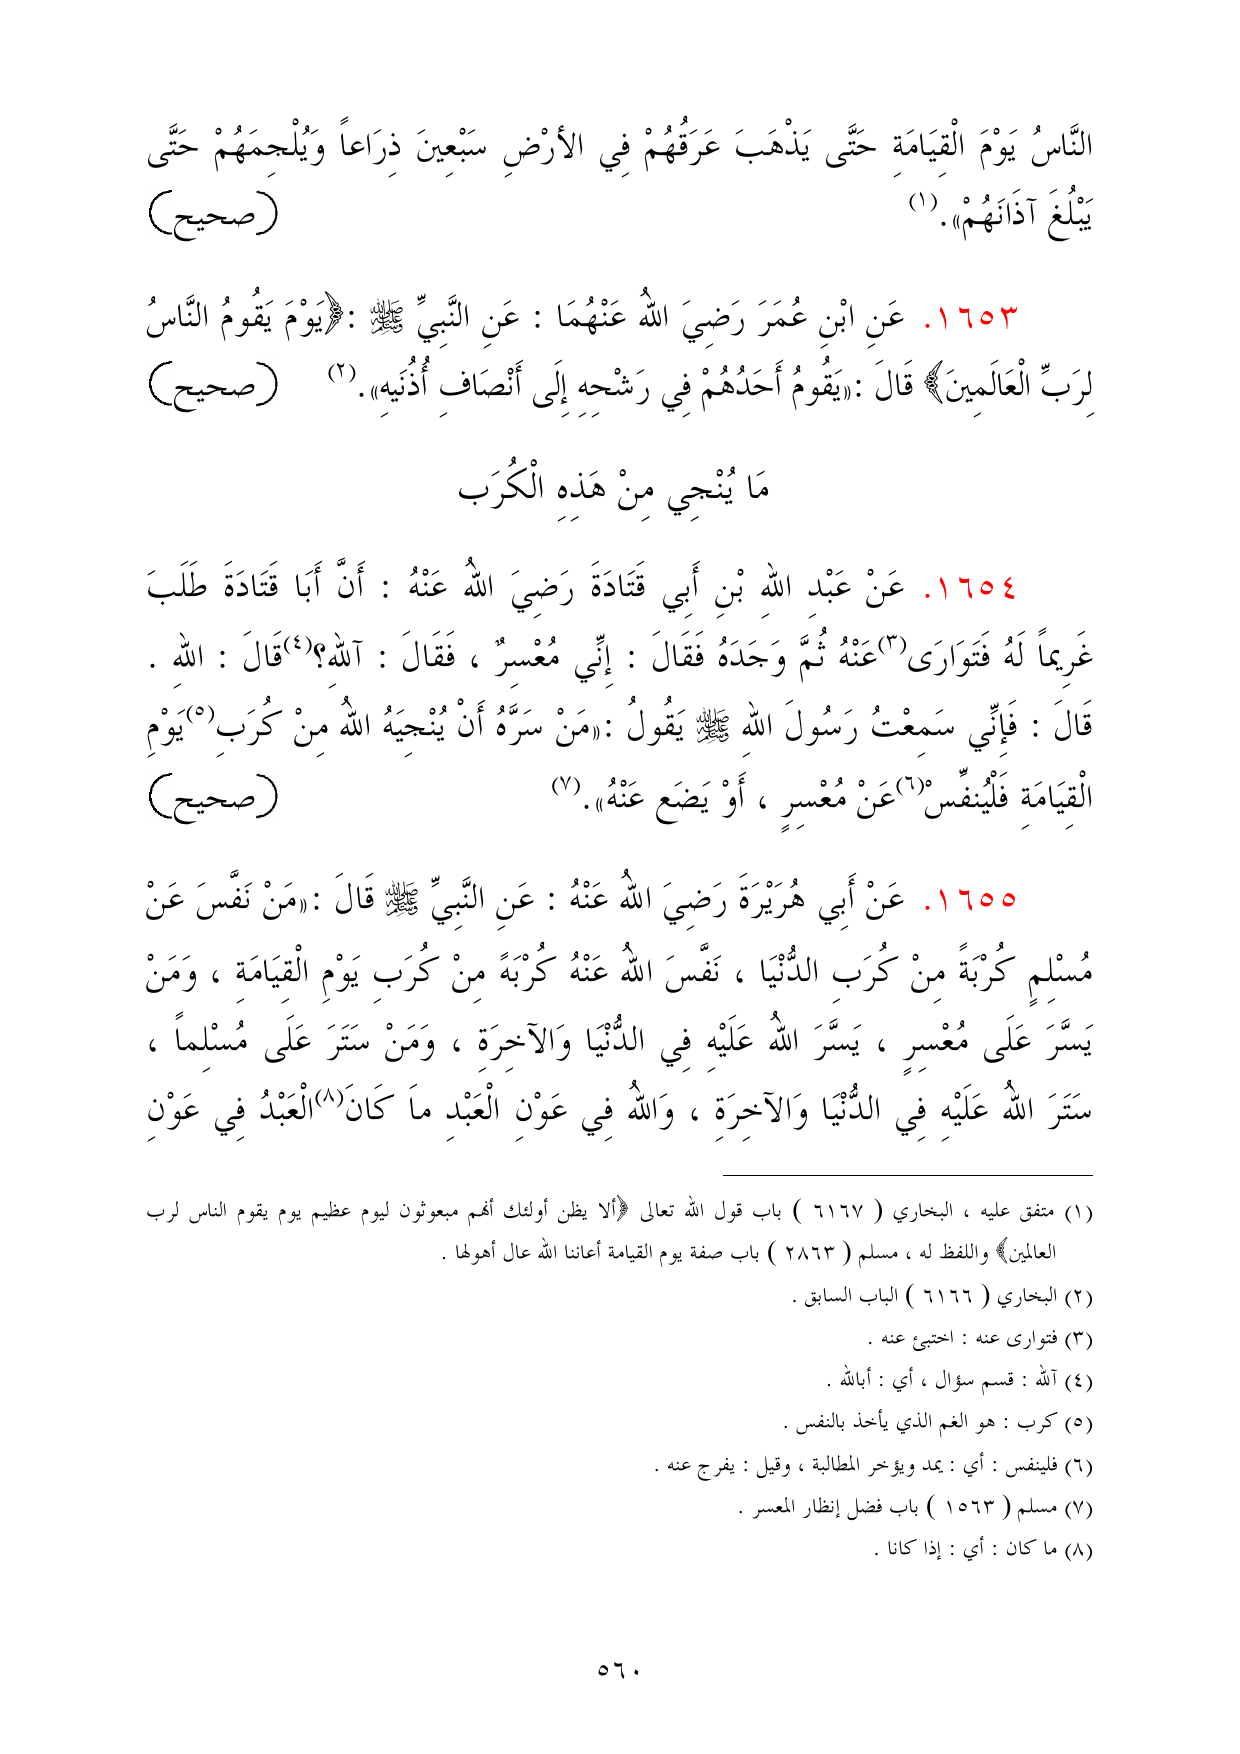 النَّاسُ يَوْمَ الْقِيَامَةِ حَتَّى يَذْهَبَ عَرَقُهُمْ فِي الأرْضِ سَبْعِينَ ذِرَاعاً وَيُلْجِمَهُمْ حَتَّى
يَبْلُغَ آذَانَهُمْ».(١) (صحيح)
١٦٥٣. عَنِ ابْنِ عُمَرَ رَضِيَ اللهُ عَنْهُمَا : عَنِ النَّبِيِّ ﷺ :﴿يَوْمَ يَقُومُ النَّاسُ
لِرَبِّ الْعَالَمِينَ﴾ قَالَ :«يَقُومُ أَحَدُهُمْ فِي رَشْحِهِ إِلَى أَنْصَافِ أُذُنَيهِ».(٢) (صحيح)
مَا يُنْجِي مِنْ هَذِهِ الْكُرَبِ
١٦٥٤. عَنْ عَبْدِ اللهِ بْنِ أَبِي قَتَادَةَ رَضِيَ اللهُ عَنْهُ : أَنَّ أَبَا قَتَادَةَ طَلَبَ
غَرِيماً لَهُ فَتَوَارَى(٣)عَنْهُ ثُمَّ وَجَدَهُ فَقَالَ : إِنِّي مُعْسِرٌ ، فَقَالَ : آللهِ؟(٤)قَالَ : اللهِ .
قَالَ : فَإِنِّي سَمِعْتُ رَسُولَ اللهِ ﷺ يَقُولُ :«مَنْ سَرَّهُ أَنْ يُنْجِيَهُ اللهُ مِنْ كُرَبِ(٥)يَوْمِ
الْقِيَامَةِ فَلْيُنفِّسْ(٦)عَنْ مُعْسِرٍ ، أَوْ يَضَع عَنْهُ».(٧) (صحيح)
١٦٥٥. عَنْ أَبِي هُرَيْرَةَ رَضِيَ اللهُ عَنْهُ : عَنِ النَّبِيِّ ﷺ قَالَ :«مَنْ نَفَّسَ عَنْ
مُسْلِمٍ كُرْبَةً مِنْ كُرَبِ الدُّنْيَا ، نَفَّسَ اللهُ عَنْهُ كُرْبَةً مِنْ كُرَبِ يَوْمِ الْقِيَامَةِ ، وَمَنْ
يَسَّرَ عَلَى مُعْسِرٍ ، يَسَّرَ اللهُ عَلَيْهِ فِي الدُّنْيَا وَالآخِرَةِ ، وَمَنْ سَتَرَ عَلَى مُسْلِماً ،
سَتَرَ اللهُ عَلَيْهِ فِي الدُّنْيَا وَالآخِرَةِ ، وَاللهُ فِي عَوْنِ الْعَبْدِ ماَ كَانَ(٨)الْعَبْدُ فِي عَوْنِ
(١) متفق عليه ، البخاري ( ٦١٦٧ ) باب قول الله تعالى ﴿ألا يظن أولئك أنهم مبعوثون ليوم عظيم يوم يقوم الناس لرب
العالمين﴾ واللفظ له ، مسلم ( ٢٨٦٣ ) باب صفة يوم القيامة أعاننا الله عال أهولها .
(٢) البخاري ( ٦١٦٦ ) الباب السابق .
(٣) فتوارى عنه : اختبئ عنه .
(٤) آلله : قسم سؤال ، أي : أبالله .
(٥) كرب : هو الغم الذي يأخذ بالنفس .
(٦) فلينفس : أي : يمد ويؤخر المطالبة ، وقيل : يفرج عنه .
(٧) مسلم ( ١٥٦٣ ) باب فضل إنظار المعسر .
(٨) ما كان : أي : إذا كانا .
٥٦٠